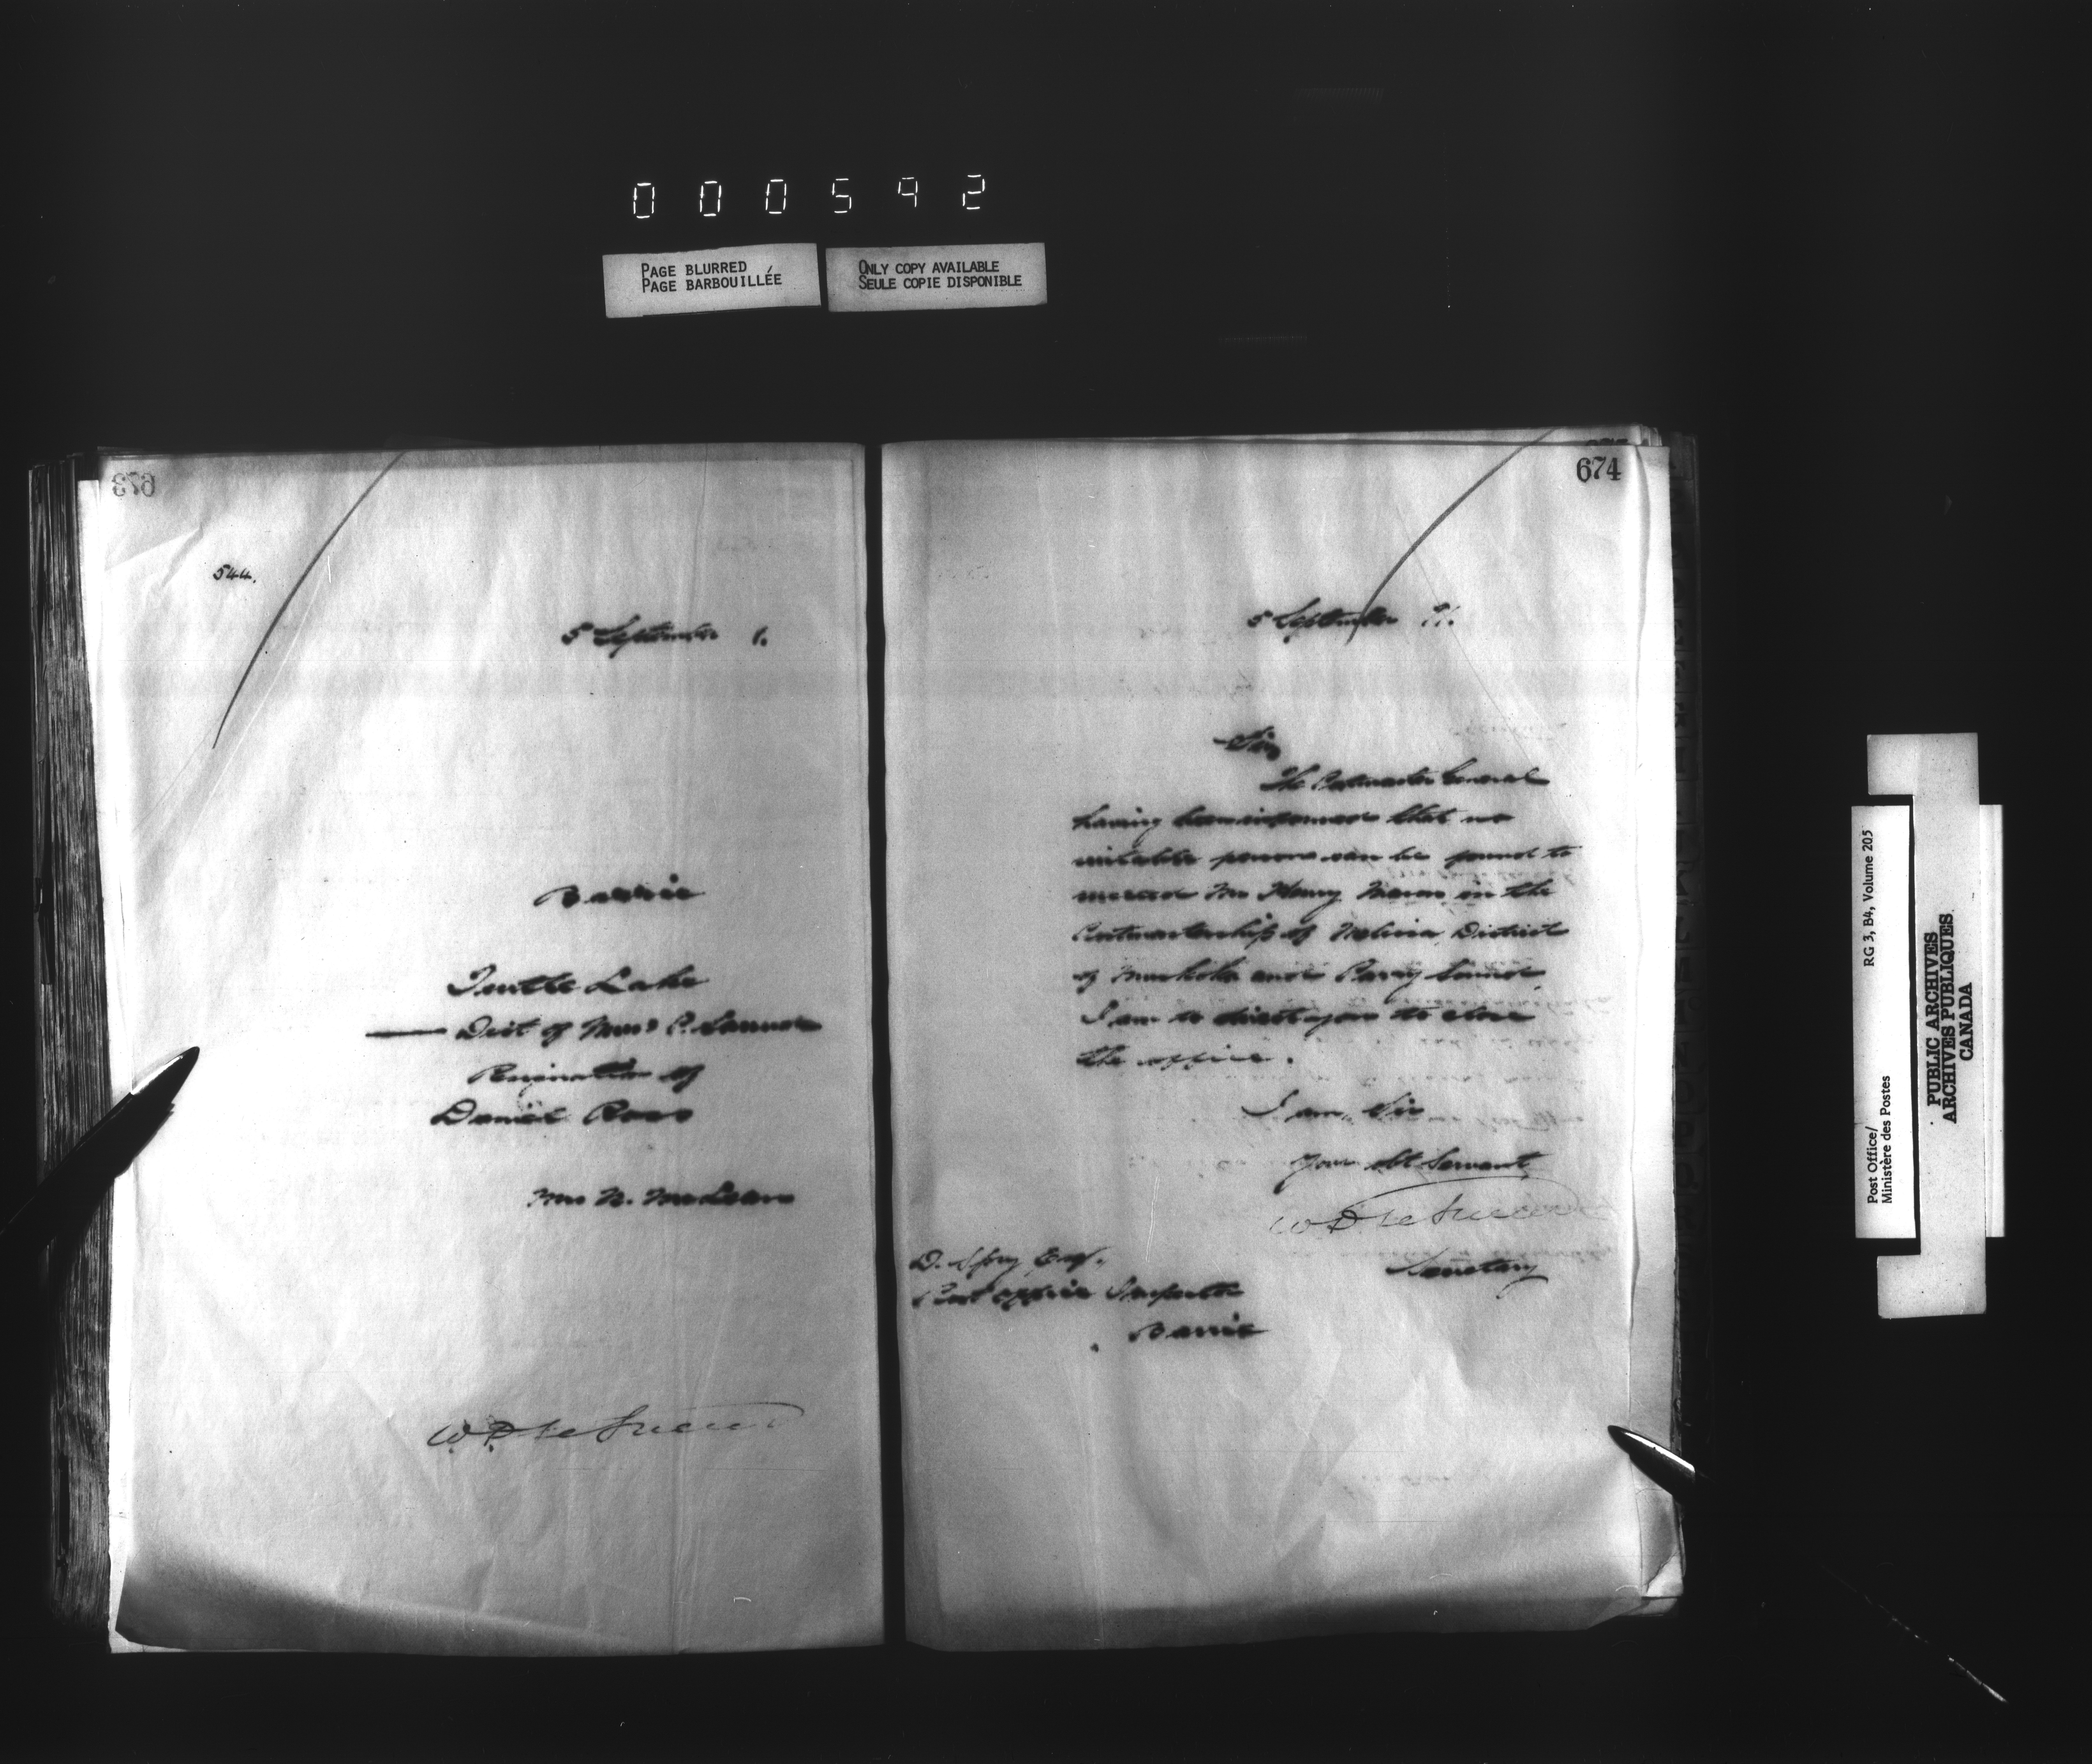 000592
PAGE BLURRED
PAGE BARBOUILLÉE
ONLY COPY AVAILABLE
SEULE COPIE DISPONIBLE
673
544.
5 September 1.
Barrie
Turtle Lake
Dist of Mus & P. Sound
Resignation of
Daniel Ross
Mrs N. McLean
W D LeSueur
674
5 September 91.
Sir,
The Postmaster General
having been informed that no
suitable person can be found to
succeed Mr Henry in the
Postmastership of District
of Muskoka and Parry Sound,
I am to direct you to close
the office.
I am, Sir
Your obt Servant,
W D LeSueur
Secretary
D. Spry Esq.
Post Office Inspector
Barrie
Post Office/
Ministère des Postes
RG 3, B4, Volume 205
PUBLIC ARCHIVES
ARCHIVES PUBLIQUES
CANADA